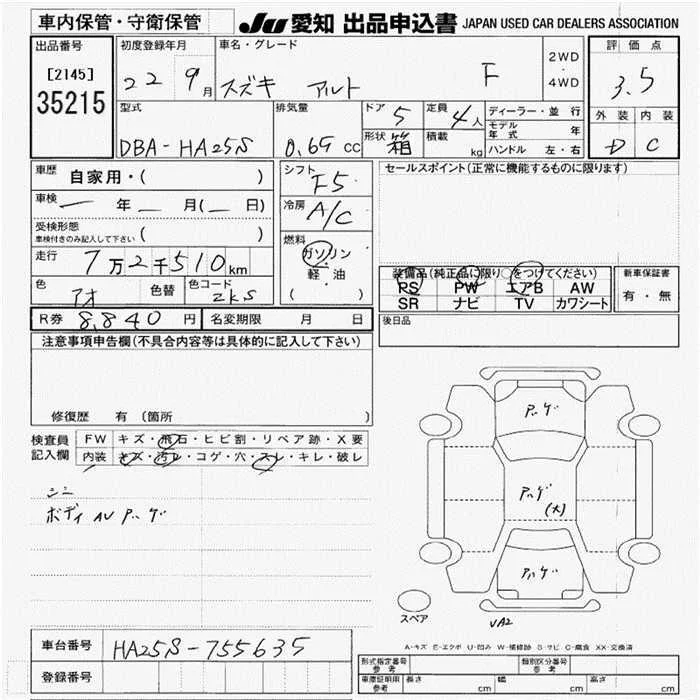 車内保管・守衛保管
JU 愛知 出品申込書 JAPAN USED CAR DEALERS ASSOCIATION
出品番号
[2145]
35215
初度登録年月
22 9月
車名・グレード
スズキ アルト F
2WD
4WD
評価点
3.5
外装 内装
D C
型式
DBA-HA25S
排気量
0.65 cc
ドア 5
形状 箱
定員 4人
積載 kg
ディーラー・並行
モデル年式 年
ハンドル 左・右
車歴 自家用・( )
車検 ー 年 ー 月(ー 日)
受検形態
車検付きのみ記入して下さい ( )
走行 7万2千510km
色 アオ 色替 色コード ZKS
R券 8,840 円 名変期限 月 日
シフト
F5
冷房
A/C
燃料
ガソリン
・
軽・油
( )
セールスポイント(正常に機能するものに限ります)
装備品(純正品に限り○をつけてください)
PS PW エアB AW
SR ナビ TV カワシート
新車保証書
有・無
後日品
注意事項申告欄(不具合内容等は具体的に記入して下さい)
修復歴 有(箇所
検査員記入欄
FW キズ・飛石・ヒビ割・リペア跡・X要
内装 キズ・汚レ・コゲ・穴・スレ・キレ・破レ
シミ
ボディ AU アハゲ
アハゲ
アハゲ
(大)
アハゲ
スペア
UA2
A-キズ E-エクボ U-凹み W-補修跡 S-サビ C-腐食 XX-交換済
車台番号 HA25S-755635
登録番号
型式指定番号 参考
類別区分番号 参考
車庫証明用 参考
長さ cm 幅 cm 高さ cm